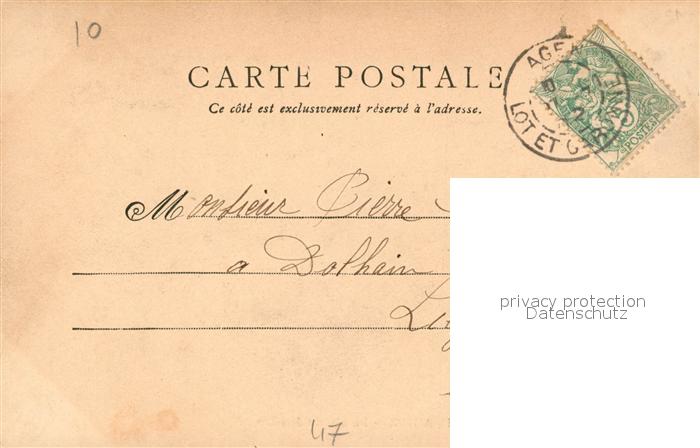 10
CARTE POSTALE
Ce côté est exclusivement réservé à l'adresse.
AGEN
LOT ET G
POSTES
Monsieur Pierre
a Dolhain
privacy protection
Datenschutz
47